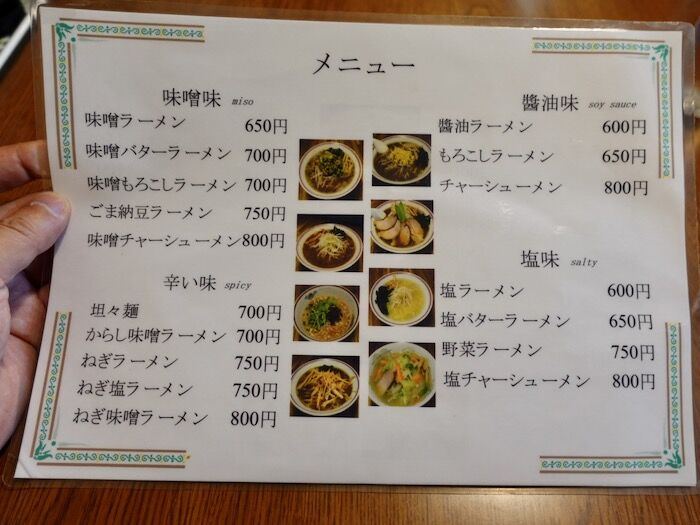 メニュー
味噌味 miso
味噌ラーメン 650円
味噌バターラーメン 700円
味噌もろこしラーメン 700円
ごま納豆ラーメン 750円
味噌チャーシューメン 800円
辛い味 spicy
坦々麺 700円
からし味噌ラーメン 700円
ねぎラーメン 750円
ねぎ塩ラーメン 750円
ねぎ味噌ラーメン 800円
醬油味 soy sauce
醬油ラーメン 600円
もろこしラーメン 650円
チャーシューメン 800円
塩味 salty
塩ラーメン 600円
塩バターラーメン 650円
野菜ラーメン 750円
塩チャーシューメン 800円